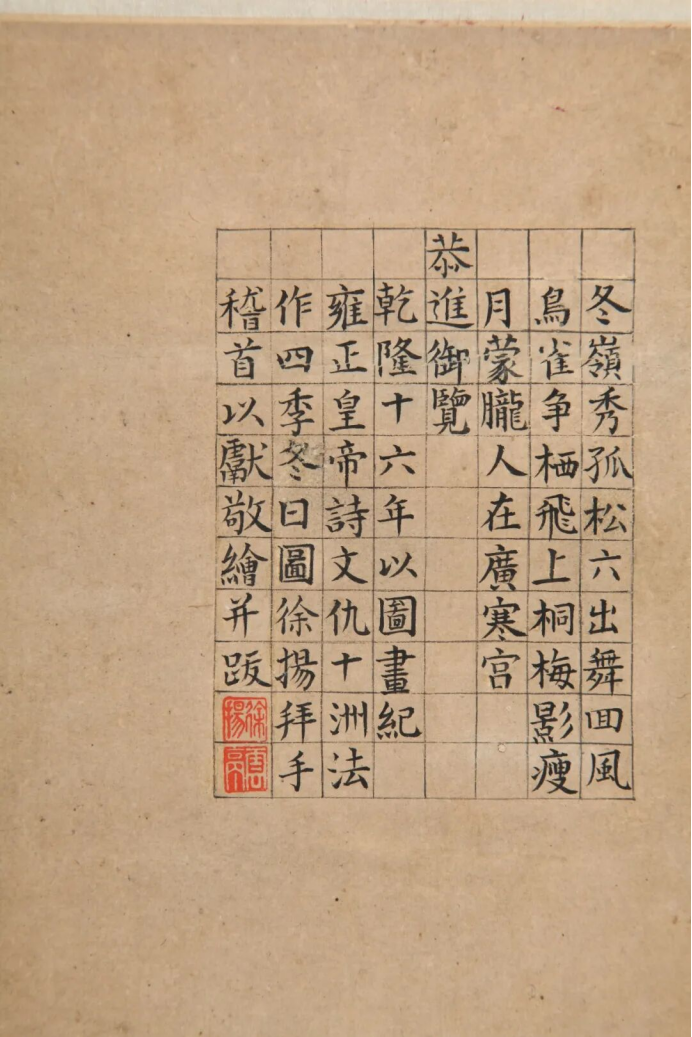 冬嶺秀孤松六出舞回風
鳥雀争栖飛上桐梅影瘦
月蒙朧人在廣寒宮
恭進御覽
乾隆十六年以圖畫紀
雍正皇帝詩文仇十洲法
作四季冬日圖徐揚拜手
稽首以獻敬繪并跋
徐揚